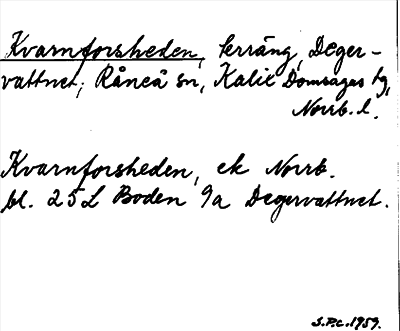 Kvarnforsheden, terräng, Deger-
vattnet; Råneå sn, Kalix Domsagas tg,
Norrb. l.
Kvarnforsheden, ek Norrb.
bl. 25L Boden 9a Degervattnet.
S.P.C. 1959.